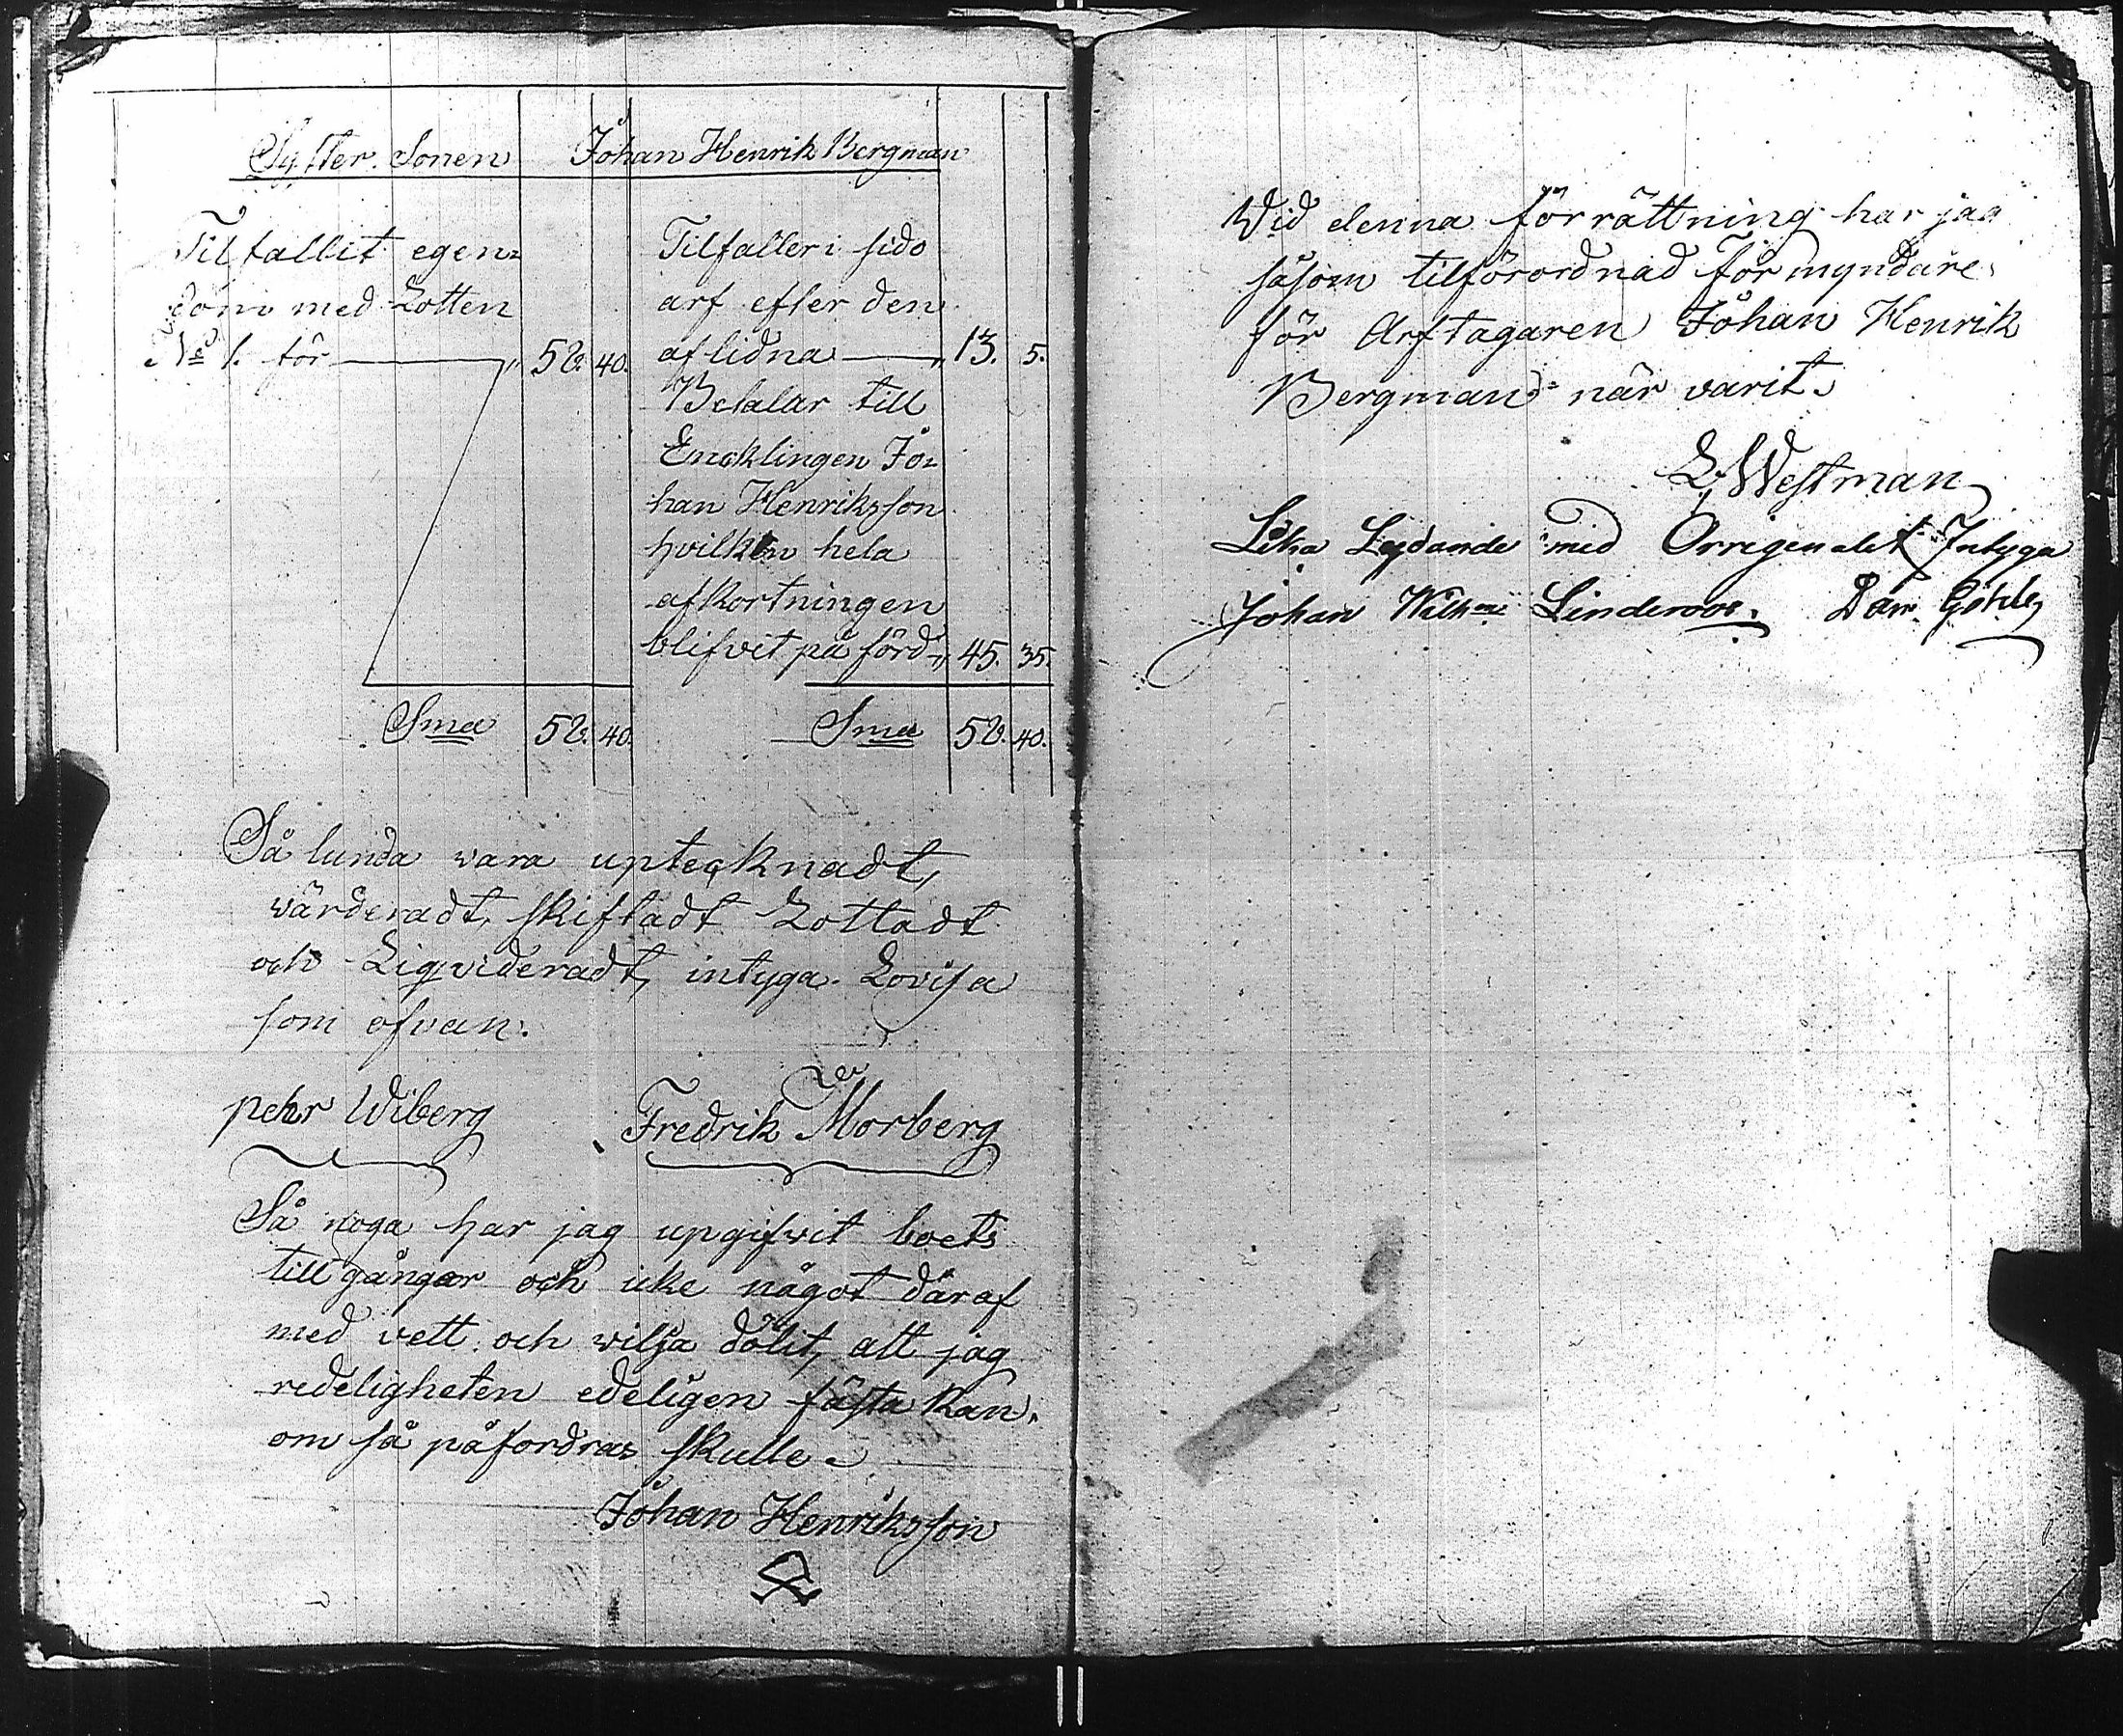 Syster Sonen Johan Henrik Bergman
Tilfallit egen=
dom med Lotten
No 1. för — " 58. 40.
Tilfaller i sido
arf efter den
aflidna — " 13. 5.
Betalar till
Encklingen Jo=
han Henriksson
hvilken hela
afkortningen
blifvit på förd " 45. 35.
Sma 58. 40.
Sma 58. 40.
Så lunda vara uptecknadt,
värderadt, skiftadt Lottadt
och Liqvideradt, intyga. Lovisa
som ofvan.
pehr Wiberg Fredrik Morberg
Så noga har jag upgifvit boets
till gångar och icke något däraf
med vett och vilja dolit, att jag
redeligheten edeligen fästa kan,
om så påfordras skulle.
Johan Henriksson
Vid denna förrättning har jag
såsom tilförordnad Förmyndare
för Arftagaren Johan Henrik
Bergman när varit.
E Westman
Lika Lydande med Orrigenalet Intyga
Johan Wilhm Linderoos. Dan